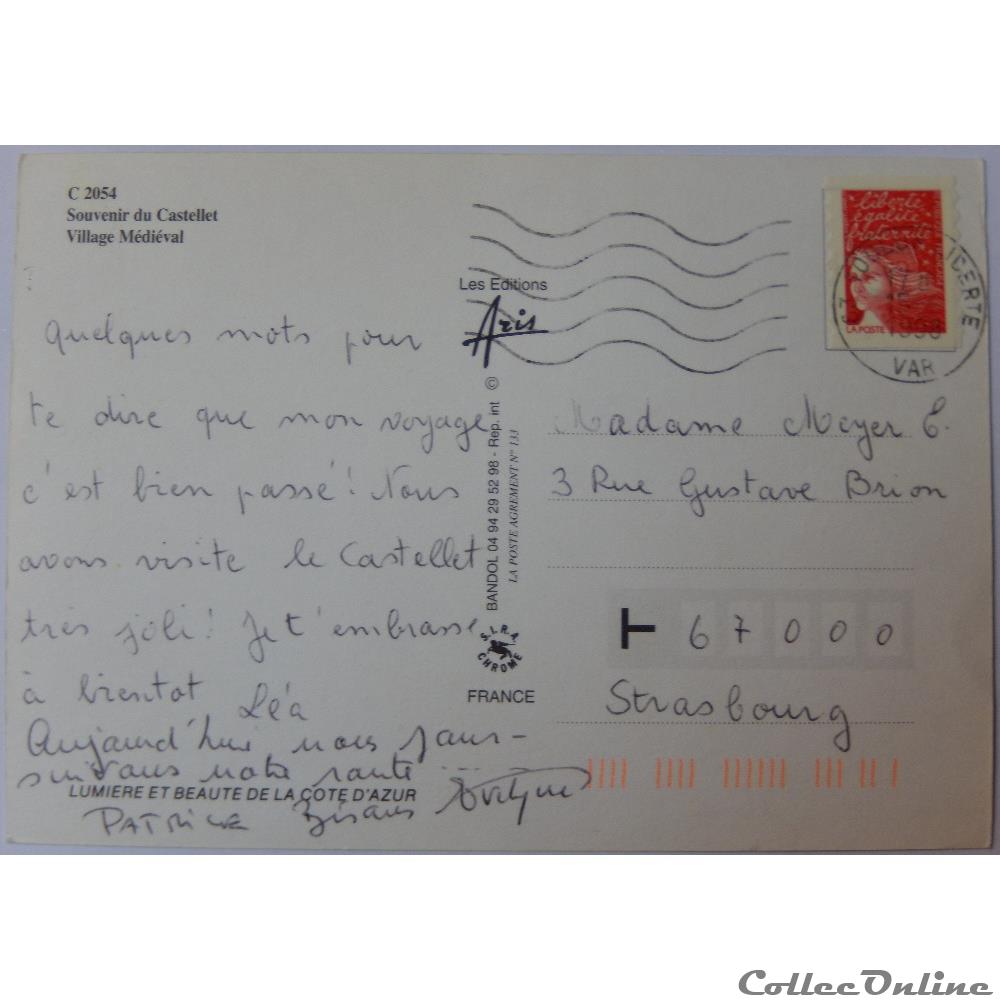 C 2054
Souvenir du Castellet
Village Médiéval
Quelques mots pour
te dire que mon voyage
c'est bien passé! Nous
avons visite le Castellet
très joli! Je t'embrasse
à bientot Léa
Aujourd'hui nous pour-
suivons notre route ....
PATRICE Bisous Evelyne
LUMIERE ET BEAUTE DE LA COTE D'AZUR
Les Editions
Aris
BANDOL 04 94 29 52 98 - Rep. int ©
LA POSTE AGREMENT N° 133
S.I.R.A
CHROME
FRANCE
liberté
égalité
fraternité
LA POSTE
1998
VAR
Madame Meyer E.
3 Rue Gustave Brion
67000
Strasbourg
CollecOnline